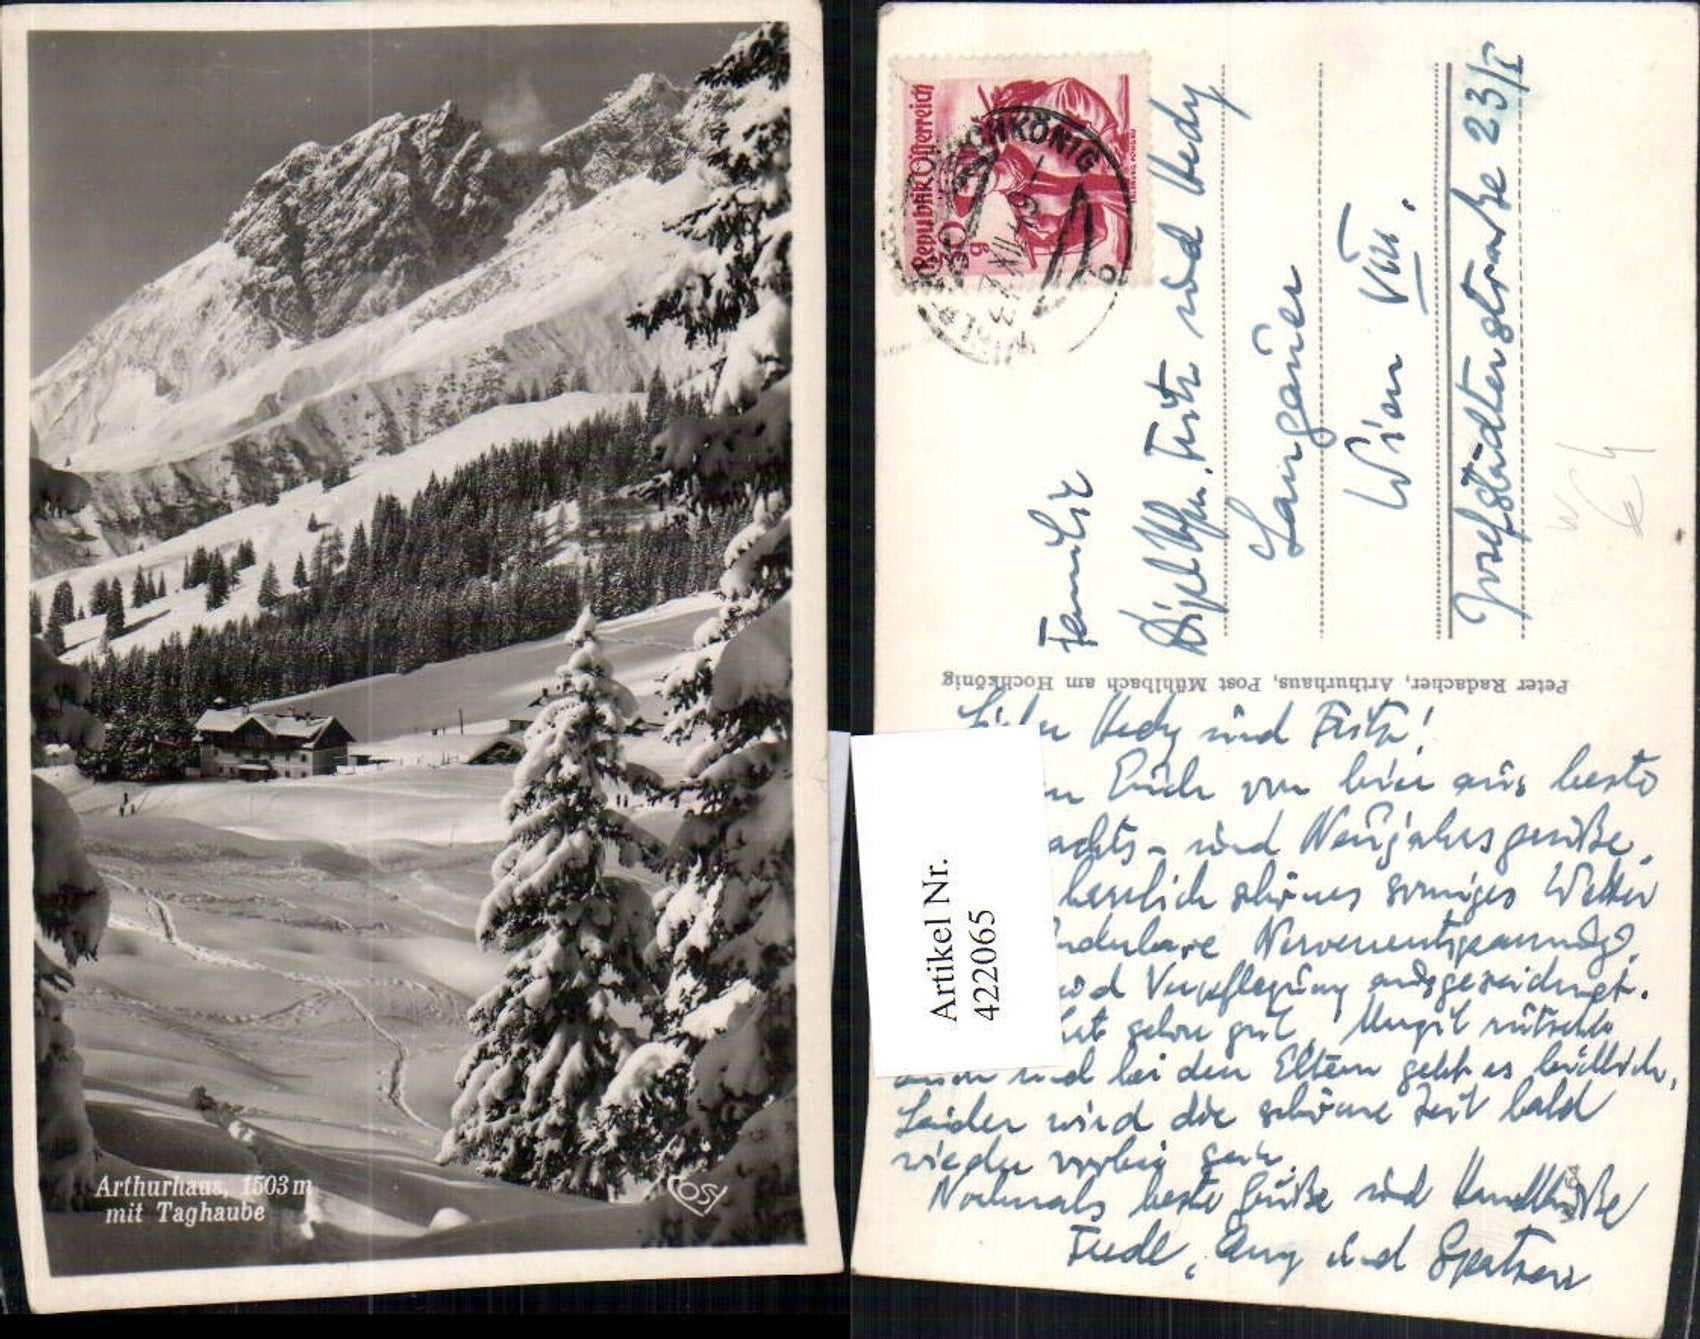 Arthurhaus, 1503 m
mit Taghaube
COSY
Republik Österreich
30 g
HOCHKÖNIG
Familie
Fritz und Hedy
Langauer
Wien VIII.
Josefstädterstraße 23/I
Peter Radacher, Arthurhaus, Post Mühlbach am Hochkönig
Artikel Nr.
422065
Hedy und Fritz!
Euch von hier aus beste
und Neujahrsgrüße.
herrlich schönes sonniges Wetter
Nervenentspannung.
und Verpflegung ausgezeichnet.
geht gut
und bei den Eltern geht es leidlich.
Leider wird die schöne Zeit bald
wieder vorbei sein.
Nochmals beste Grüße und Handküße
und